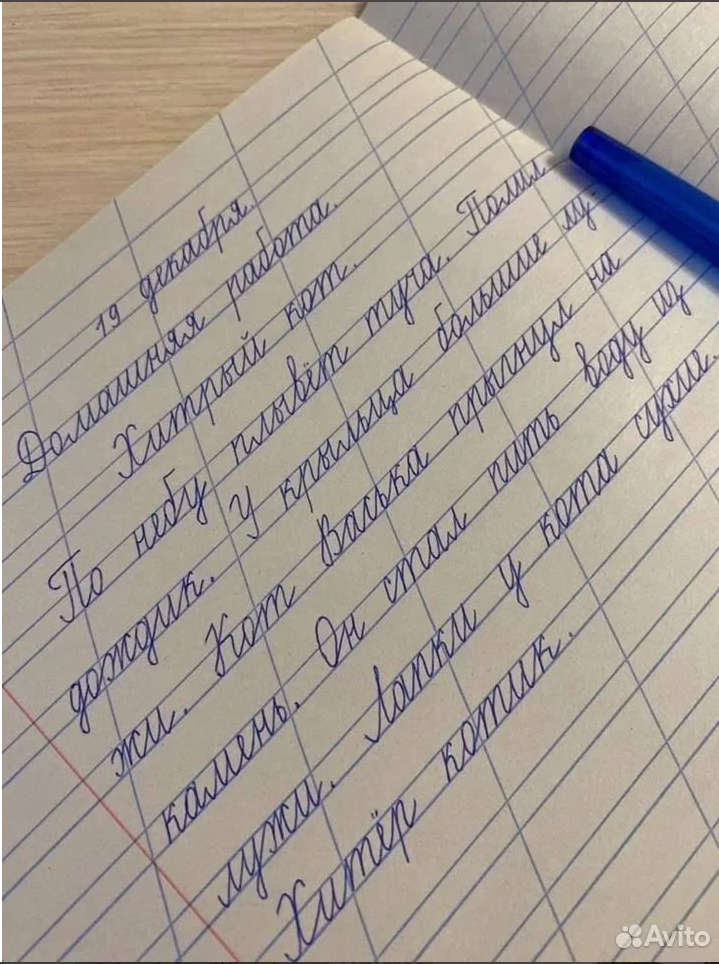 19 декабря.
Домашняя работа.
Хитрый кот.
По небу плывёт туча. Полил
дождик. У крыльца большие лу-
жи. Кот Васька прыгнул на
камень. Он стал пить воду из
лужи. Лапки у кота сухие.
Хитёр котик.
Avito